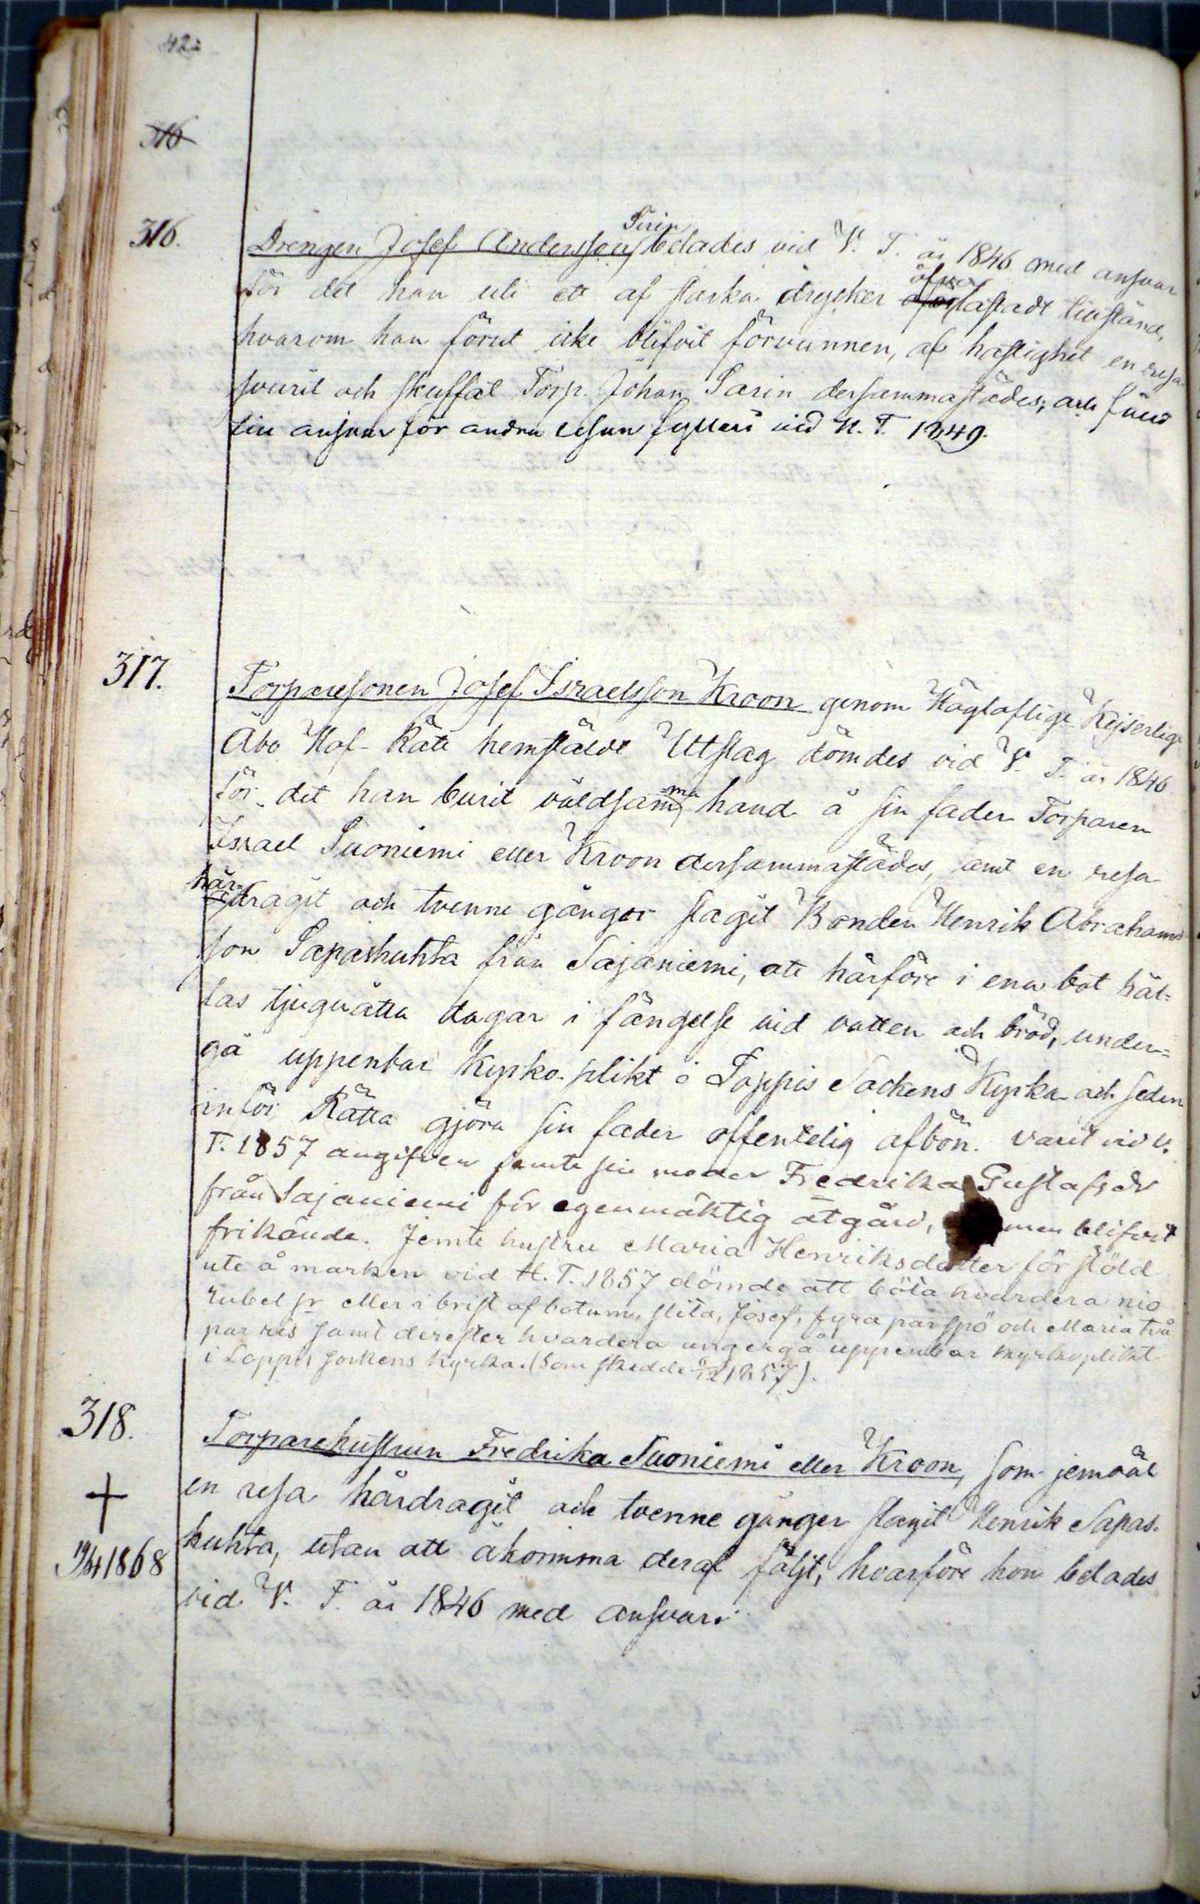 42.
316
316.
Drengen Josef Andersson Sirin belades vid V. T. år 1846 med ansvar
för det han uti ett af starka drycker öfverlastadt tillstånd,
hvarom han förut icke blifvit förvunnen, af hastighet en resa
svurit och skuffat Torp. Johan Sarin dersammastädes; och
till ansvar för andra resan fylleri vid H. T. 1849.
317.
Torparesonen Josef Israelsson Kroon genom Högloflige Kejserlige
Åbo Hof-Rätt hemstäldt Utslag dömdes vid V. T. år 1846
för det han burit våldsamma hand å sin fader Torparen
Israel Suoniemi eller Kroon dersammastädes, samt en resa
hårdragit och tvenne gånger slagit Bonden Henrik Abrahams
son Sapashuhta från Sajaniemi, att härföre i ena bot hål-
las tjuguåtta dagar i fängelse vid vatten och bröd, under-
gå uppenbar kyrko-plikt i Loppis Sockens Kyrka och sedan
inför Rätta gjöra sin fader offentelig afbön. varit vid V.
T. 1857 angifven jemte sin moder Fredrika Gustafsdr
från Sajaniemi för egenmäktig åtgärd, men blifvit
frikände. Jemte hustru Maria Henriksdotter för stöld
ute å marken vid H. T. 1857 dömde att böta hvardera nio
rubel sr eller i brist af botum, slita, Josef, fyra par spö och Maria två
par ris samt derefter hvardera undergå uppenbar kyrkoplikt
i Loppis sockens kyrka. (Som skedde 1857).
318.
Torparehustrun Fredrika Suoniemi eller Kroon, som jemväl
en resa hårdragit och tvenne gånger slagit Henrik Sapas-
huhta, utan att åkomma deraf följt, hvarföre hon belades
1868
vid V. T. år 1846 med ansvar.